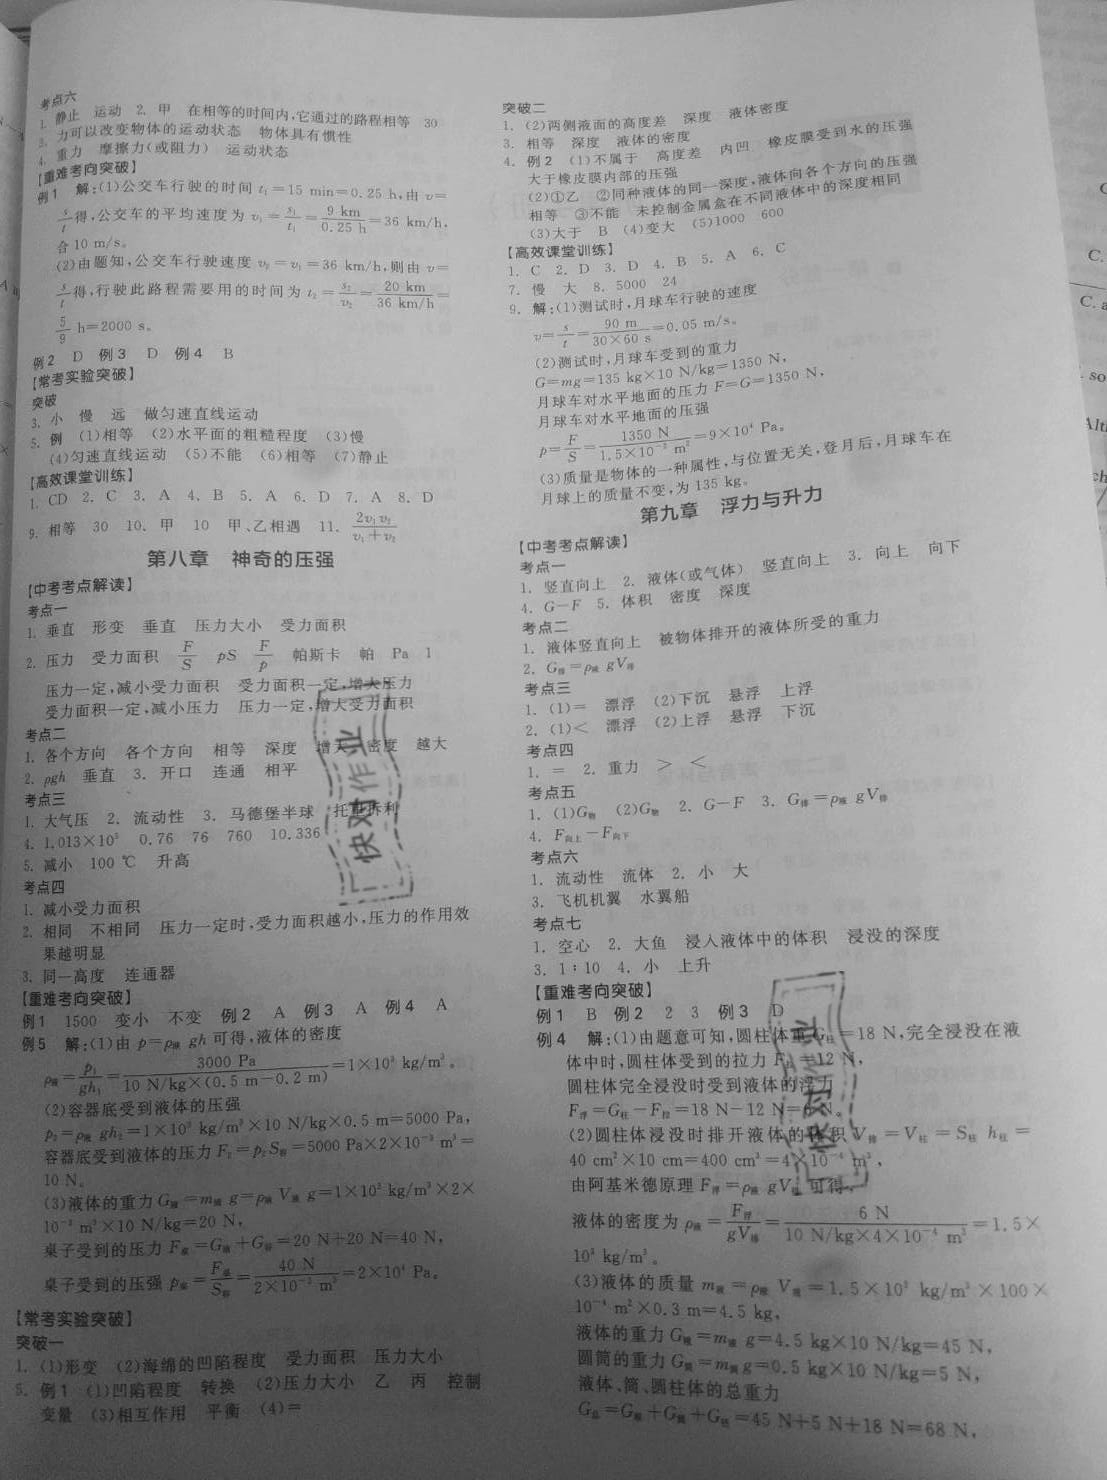 考点六
1. 静止 运动 2. 甲 在相等的时间内,它通过的路程相等 30
3. 力可以改变物体的运动状态 物体具有惯性
4. 重力 摩擦力(或阻力) 运动状态
【重难考向突破】
例1 解:(1)公交车行驶的时间 t₁=15 min=0.25 h,由 v=
s/t 得,公交车的平均速度为 v₁=s₁/t₁=9 km/0.25 h=36 km/h,
合 10 m/s。
(2)由题知,公交车行驶速度 v₂=v₁=36 km/h,则由 v=
s/t 得,行驶此路程需要用的时间为 t₂=s₂/v₂=20 km/36 km/h=
5/9 h=2000 s。
例2 D 例3 D 例4 B
【常考实验突破】
突破
3. 小 慢 远 做匀速直线运动
5. 例 (1)相等 (2)水平面的粗糙程度 (3)慢
(4)匀速直线运动 (5)不能 (6)相等 (7)静止
【高效课堂训练】
1. CD 2. C 3. A 4. B 5. A 6. D 7. A 8. D
9. 相等 30 10. 甲 10 甲、乙相遇 11. 2v₁v₂/(v₁+v₂)
第八章 神奇的压强
【中考考点解读】
考点一
1. 垂直 形变 垂直 压力大小 受力面积
2. 压力 受力面积 F/S pS F/p 帕斯卡 帕 Pa 1
压力一定,减小受力面积 受力面积一定,增大压力
受力面积一定,减小压力 压力一定,增大受力面积
考点二
1. 各个方向 各个方向 相等 深度 增大 密度 越大
2. ρgh 垂直 3. 开口 连通 相平
考点三
1. 大气压 2. 流动性 3. 马德堡半球 托里拆利
4. 1.013×10⁵ 0.76 76 760 10.336
5. 减小 100 ℃ 升高
考点四
1. 减小受力面积
2. 相同 不相同 压力一定时,受力面积越小,压力的作用效
果越明显
3. 同一高度 连通器
【重难考向突破】
例1 1500 变小 不变 例2 A 例3 A 例4 A
例5 解:(1)由 p=ρ液gh 可得,液体的密度
ρ液=p₁/gh₁=3000 Pa/10 N/kg×(0.5 m−0.2 m)=1×10³ kg/m³。
(2)容器底受到液体的压强
p₂=ρ液gh₂=1×10³ kg/m³×10 N/kg×0.5 m=5000 Pa,
容器底受到液体的压力 F₂=p₂S容=5000 Pa×2×10⁻³ m²=
10 N。
(3)液体的重力 G液=m液g=ρ液V液g=1×10³ kg/m³×2×
10⁻³ m³×10 N/kg=20 N,
桌子受到的压力 F桌=G液+G容=20 N+20 N=40 N,
桌子受到的压强 p桌=F桌/S容=40 N/2×10⁻³ m²=2×10⁴ Pa。
【常考实验突破】
突破一
1. (1)形变 (2)海绵的凹陷程度 受力面积 压力大小
5. 例1 (1)凹陷程度 转换 (2)压力大小 乙 丙 控制
变量 (3)相互作用 平衡 (4)=
突破二
1. (2)两侧液面的高度差 深度 液体密度
3. 相等 深度 液体的密度
4. 例2 (1)不属于 高度差 内凹 橡皮膜受到水的压强
大于橡皮膜内部的压强
(2)①乙 ②同种液体的同一深度,液体向各个方向的压强
相等 ③不能 未控制金属盒在不同液体中的深度相同
(3)大于 B (4)变大 (5)1000 600
【高效课堂训练】
1. C 2. D 3. D 4. B 5. A 6. C
7. 慢 大 8. 5000 24
9. 解:(1)测试时,月球车行驶的速度
v=s/t=90 m/30×60 s=0.05 m/s。
(2)测试时,月球车受到的重力
G=mg=135 kg×10 N/kg=1350 N,
月球车对水平地面的压力 F=G=1350 N,
月球车对水平地面的压强
p=F/S=1350 N/1.5×10⁻² m²=9×10⁴ Pa。
(3)质量是物体的一种属性,与位置无关,登月后,月球车在
月球上的质量不变,为 135 kg。
第九章 浮力与升力
【中考考点解读】
考点一
1. 竖直向上 2. 液体(或气体) 竖直向上 3. 向上 向下
4. G−F 5. 体积 密度 深度
考点二
1. 液体竖直向上 被物体排开的液体所受的重力
2. G排=ρ液gV排
考点三
1. (1)= 漂浮 (2)下沉 悬浮 上浮
2. (1)< 漂浮 (2)上浮 悬浮 下沉
考点四
1. = 2. 重力 > <
考点五
1. (1)G物 (2)G物 2. G−F 3. G排=ρ液gV排
4. F向上−F向下
考点六
1. 流动性 流体 2. 小 大
3. 飞机机翼 水翼船
考点七
1. 空心 2. 大鱼 浸入液体中的体积 浸没的深度
3. 1∶10 4. 小 上升
【重难考向突破】
例1 B 例2 2 3 例3 D
例4 解:(1)由题意可知,圆柱体重 G柱=18 N,完全浸没在液
体中时,圆柱体受到的拉力 F拉=12 N,
圆柱体完全浸没时受到液体的浮力
F浮=G柱−F拉=18 N−12 N=6 N。
(2)圆柱体浸没时排开液体的体积 V排=V柱=S柱h柱=
40 cm²×10 cm=400 cm³=4×10⁻⁴ m³,
由阿基米德原理 F浮=ρ液gV排 可得,
液体的密度为 ρ液=F浮/gV排=6 N/10 N/kg×4×10⁻⁴ m³=1.5×
10³ kg/m³。
(3)液体的质量 m液=ρ液V液=1.5×10³ kg/m³×100×
10⁻⁴ m²×0.3 m=4.5 kg,
液体的重力 G液=m液g=4.5 kg×10 N/kg=45 N,
圆筒的重力 G筒=m筒g=0.5 kg×10 N/kg=5 N,
液体、筒、圆柱体的总重力
G总=G液+G筒+G柱=45 N+5 N+18 N=68 N,
快对作业
快对作业